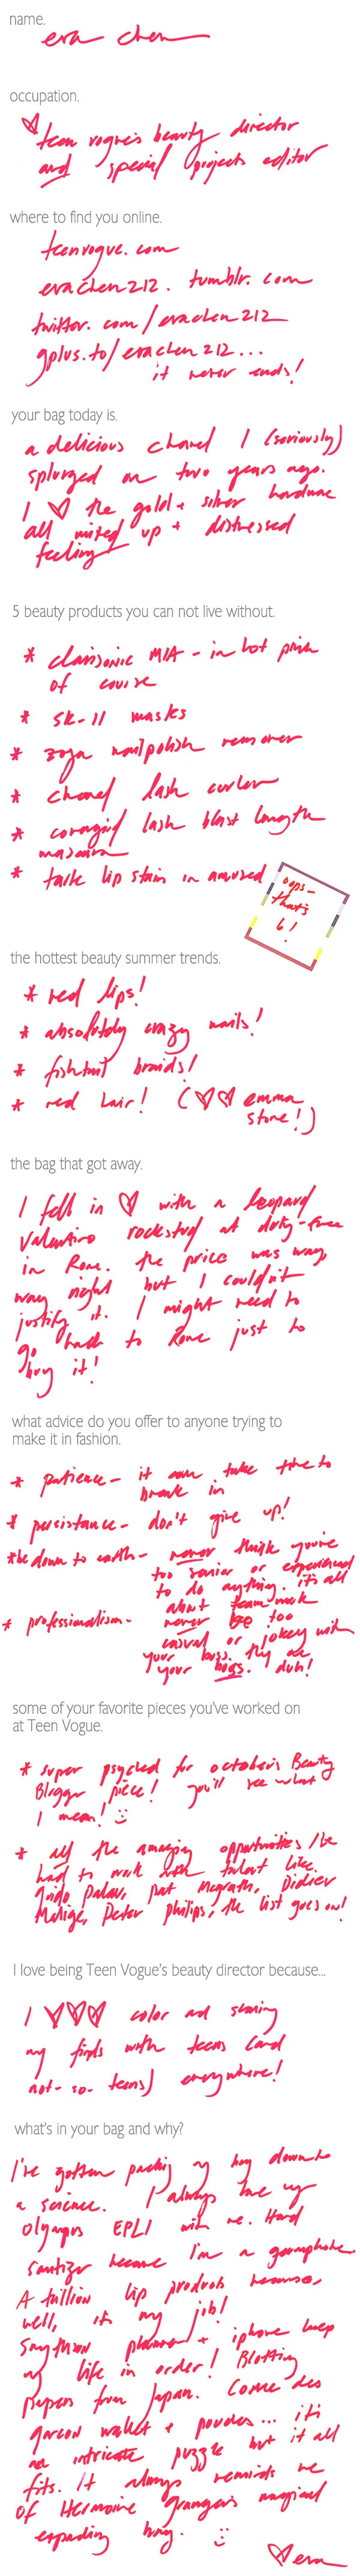 name.
eva chen
occupation.
teen vogue's beauty director
and special projects editor
where to find you online.
teenvogue.com
evachen212.tumblr.com
twitter.com/evachen212
gplus.to/evachen212...
it never ends!
your bag today is.
a delicious chanel I (seriously)
splurged on two years ago.
I ♡ the gold + silver hardware
all mixed up + distressed
feeling
5 beauty products you can not live without.
* clarisonic MIA - in hot pink
of course
* SK-II masks
* zoya nailpolish remover
* chanel lash curler
* covergirl lash blast length
mascara
* tarte lip stain in amused
oops-
that's
6!
the hottest beauty summer trends.
* red lips!
* absolutely crazy nails!
* fishtail braids!
* red hair! (♡♡ emma
stone!)
the bag that got away.
I fell in ♡ with a leopard
Valentino rockstud at duty-free
in Rome. the price was way,
way right but I couldn't
justify it. I might need to
go back to Rome just to
buy it!
what advice do you offer to anyone trying to
make it in fashion.
* patience - it can take time to
break in
* persistance - don't give up!
* be down to earth - never think you're
too senior or experienced
to do anything. it's all
about team work
* professionalism - never be too
casual or jokey with
your boss. they are
your boss. duh!
some of your favorite pieces you've worked on
at Teen Vogue.
* super psyched for october's Beauty
Blogger piece! you'll see what
I mean! :)
* all the amazing opportunities I've
had to work with talent like
Guido Palau, pat Mcgrath, Didier
Malige, Peter philips, the list goes on!
I love being Teen Vogue's beauty director because...
I ♡♡♡ color and sharing
my finds with teens (and
not-so-teens) everywhere!
what's in your bag and why?
I've gotten packing my bag down to
a science. I always have my
Olympus EPL1 with me. Hand
sanitizer because I'm a germaphobe.
A trillion lip products because,
well, it's my job!
Smythson planner + iphone keep
my life in order! Blotting
papers from Japan. Comme des
garcon wallet + pouches... it's
an intricate puzzle but it all
fits. It always reminds me
of Hermoine Granger's magical
expanding bag. :)
♡ eva